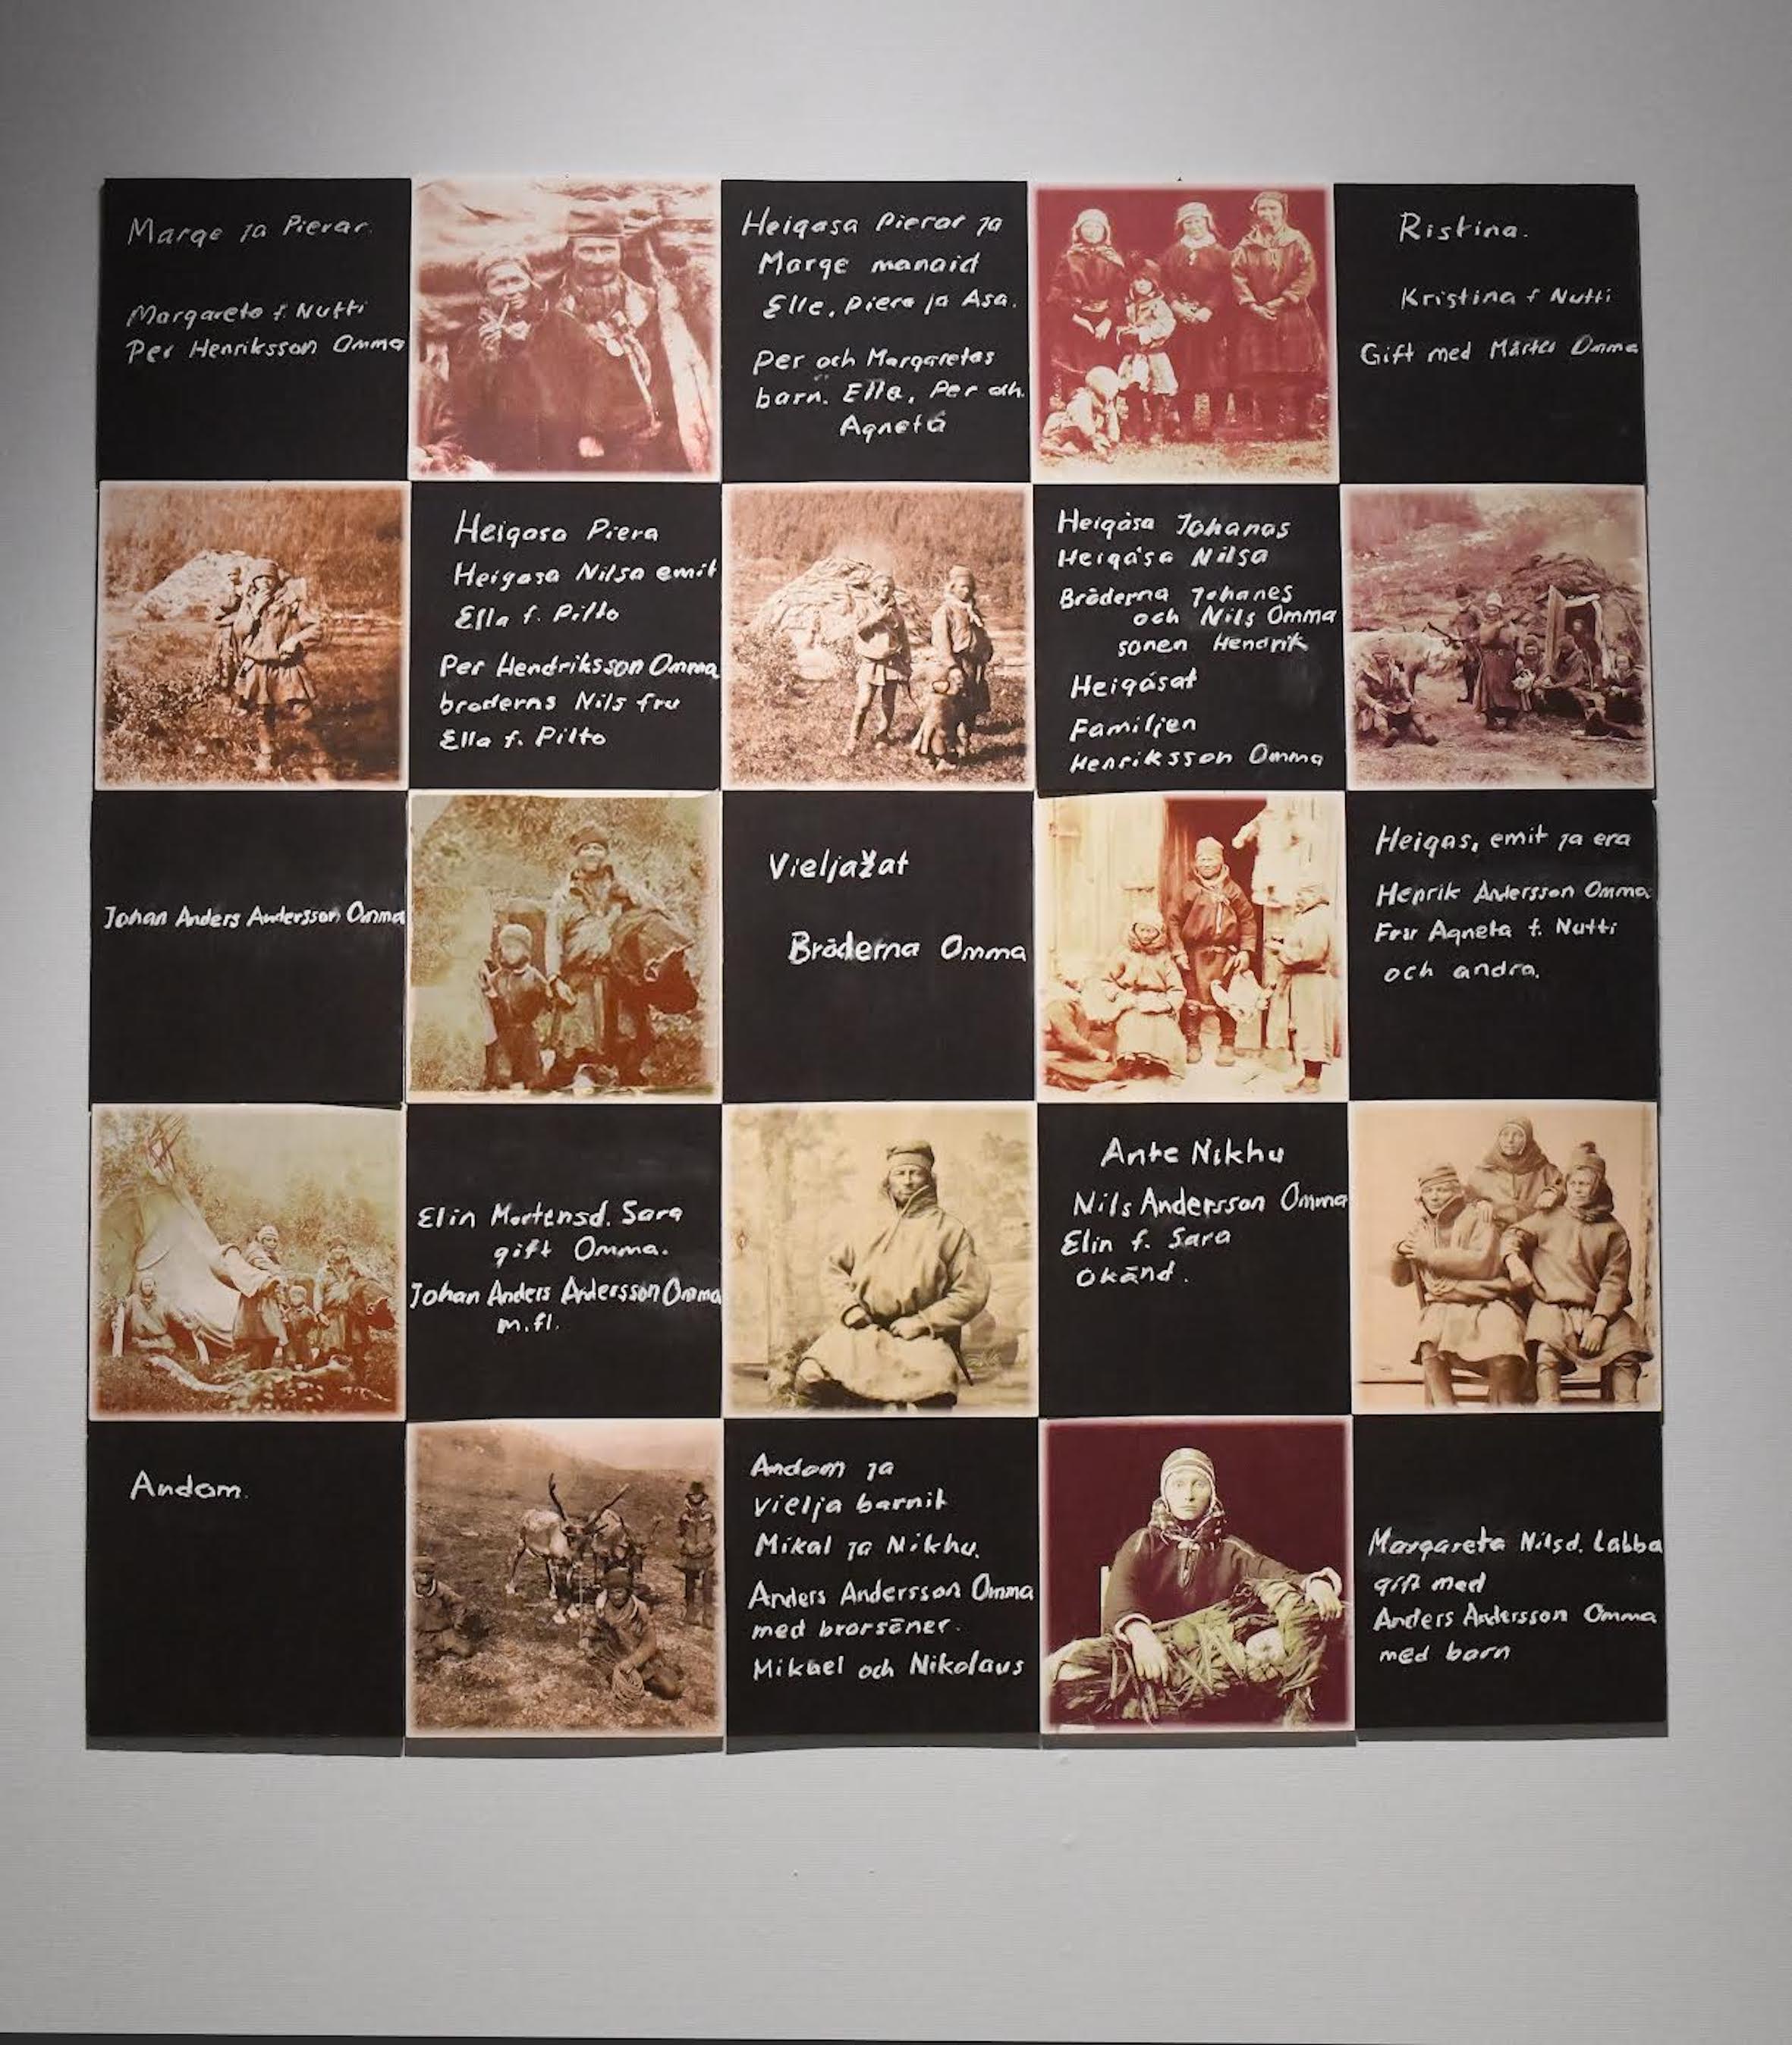 Marge ja Pierar.
Margareta f. Nutti
Per Henriksson Omma
Heigasa Pierar ja
Marge manaid
Elle, Piera ja Asa.
Per och Margaretas
barn. Elle, Per och
Agneta
Ristina.
Kristina f Nutti
Gift med Mårten Omma
Heigasa Piera
Heigasa Nilsa emit
Ella f. Pilto
Per Hendriksson Omma
broderns Nils fru
Ella f. Pilto
Heigása Johanas
Heigása Nilsa
Bröderna Johanes
och Nils Omma
sonen Hendrik
Heigásat
Familjen
Henriksson Omma
Johan Anders Andersson Omma
Vieljažat
Bröderna Omma
Heigas, emit ja era
Henrik Andersson Omma
Fru Agneta f. Nutti
och andra.
Elin Mortensd. Sara
gift Omma.
Johan Anders Andersson Omma
m.fl.
Ante Nikhu
Nils Andersson Omma
Elin f. Sara
Okänd.
Andom.
Andom ja
vielja barnit
Mikal ja Nikhu.
Anders Andersson Omma
med brorsöner.
Mikael och Nikolaus
Margareta Nilsd. Labba
gift med
Anders Andersson Omma
med barn